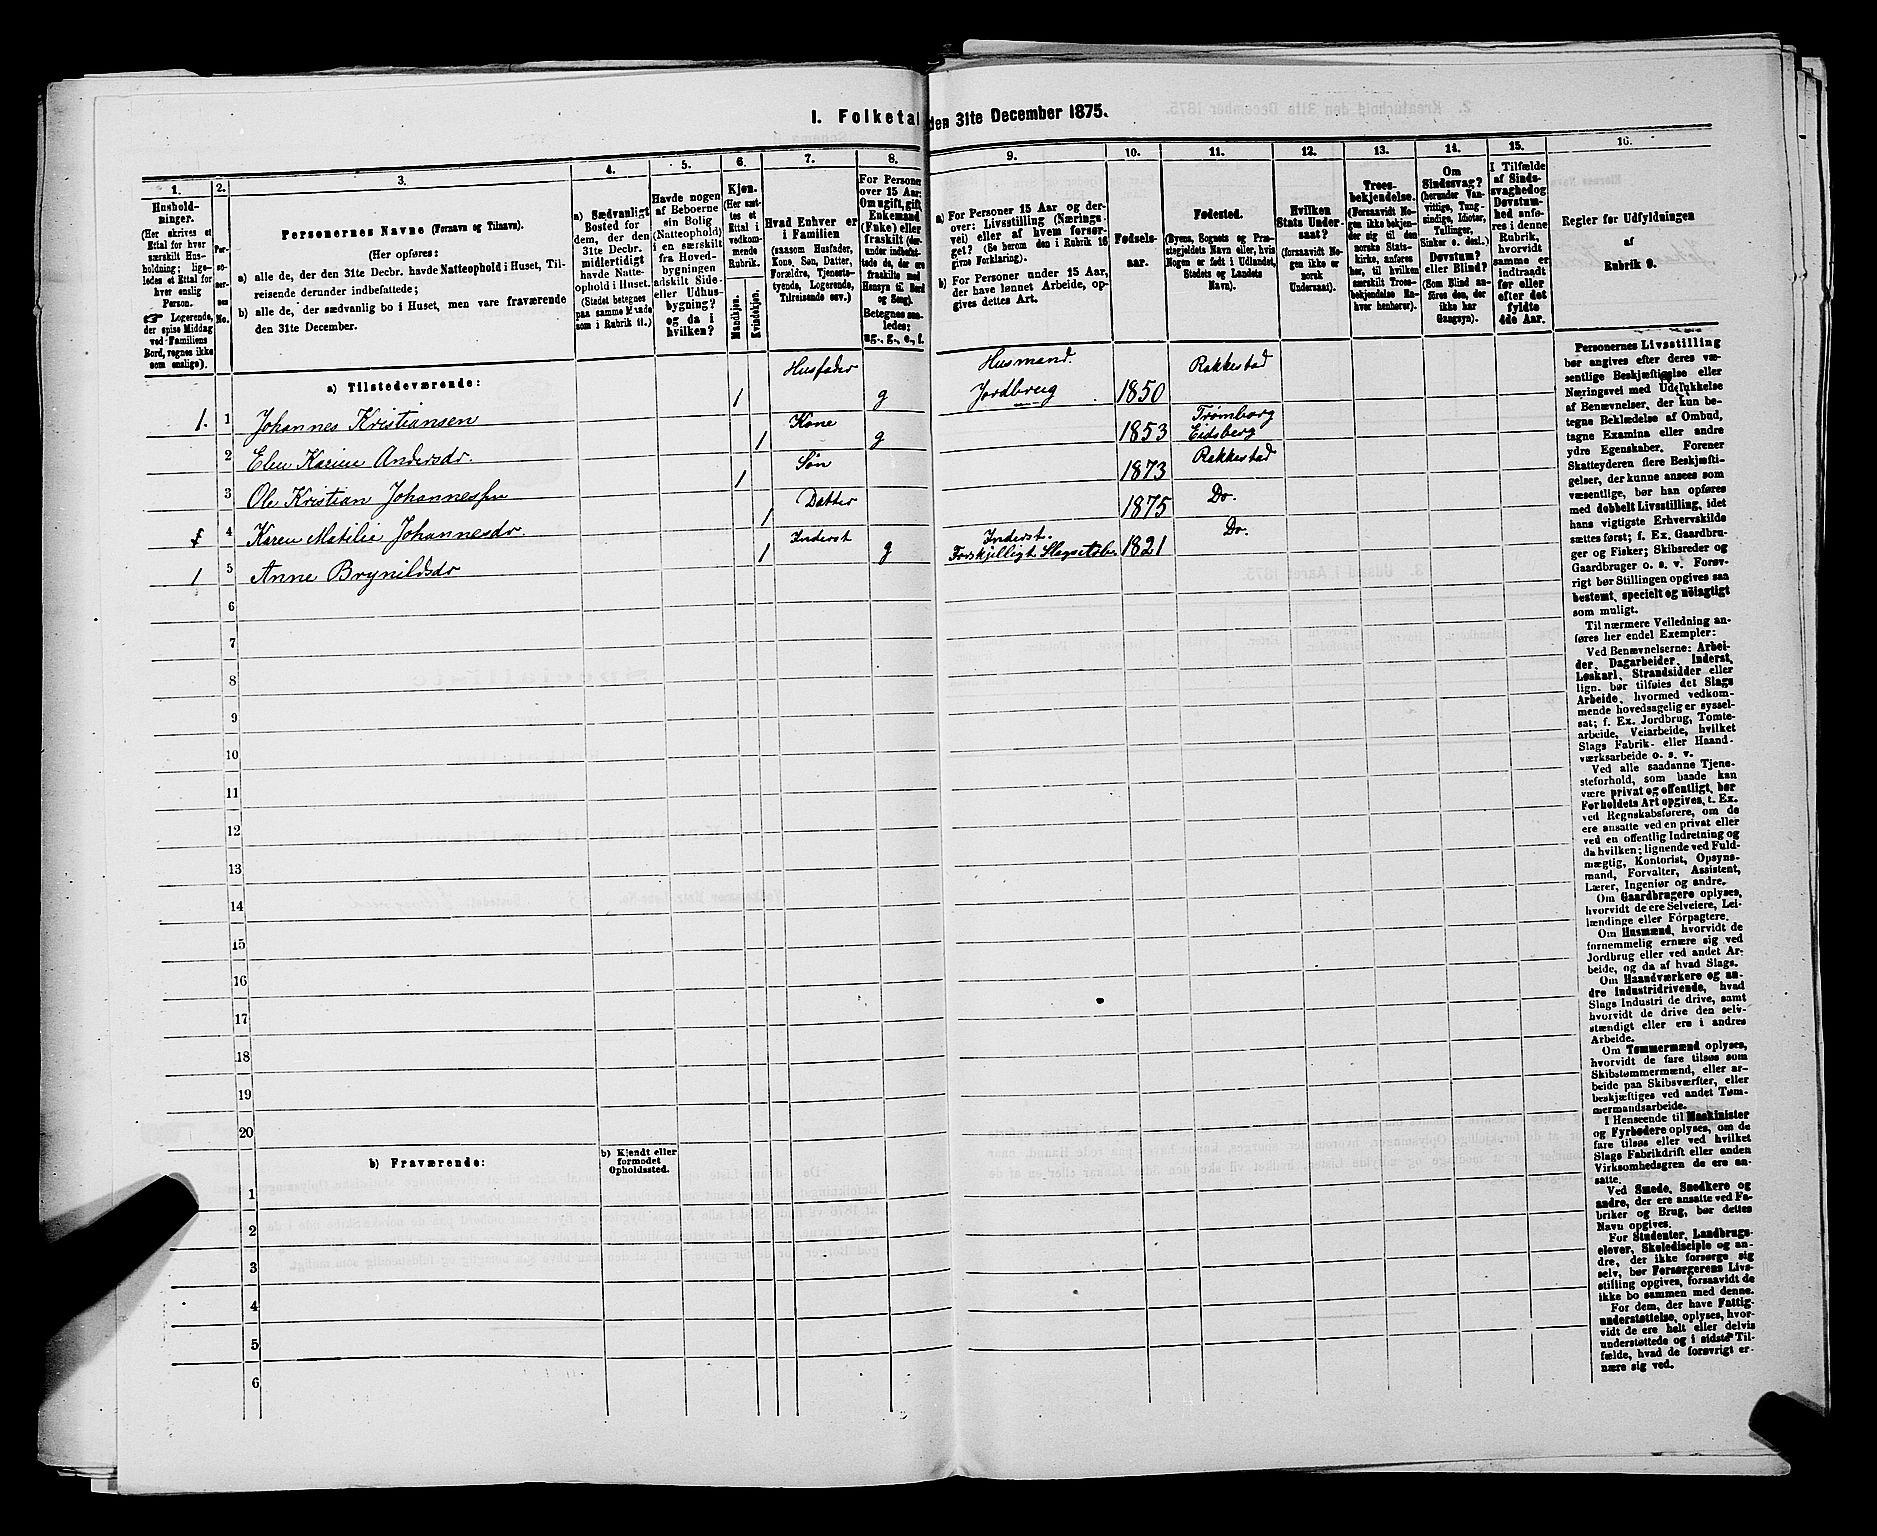 I. Folketal den 31te December 1875.
1. 2. 3. 4. 5. 6. 7. 8. 9. 10. 11. 12. 13. 14. 15. 16.
Husholdninger.
(Her skrives et Ettal for hver særskilt Husholdning; ligeledes et Ettal for hver enslig Person.
☞ Logerende, der spise Middag ved Familiens Bord, regnes ikke som enslige).
Personernes No.
Personernes Navne (Fornavn og Tilnavn).
(Her opføres:
a) alle de, der den 31te Decbr. havde Natteophold i Huset, Tilreisende derunder indbefattede;
b) alle de, der sædvanlig bo i Huset, men vare fraværende den 31te December.
a) Sædvanligt Bosted for dem, der den 31te Decbr. midlertidigt havde Natteophold i Huset.
(Stedet betegnes paa samme Maade som i Rubrik 11.)
Havde nogen af Beboerne sin Bolig (Natteophold) i en særskilt fra Hovedbygningen adskilt Side- eller Udhusbygning? og da i hvilken?
Kjøn.
(Her sættes et Ettal i vedkommende Rubrik.
Mandkjøn. Kvindekjøn.
Hvad Enhver er i Familien
(saasom Husfader, Kone, Søn, Datter, Forældre, Tjenestetyende, Logerende, Tilreisende osv.)
For Personer over 15 Aar: Om ugift, gift, Enkemand (Enke) eller fraskilt (derunder indbefattede de, der ere fraskilte med Hensyn til Bord og Seng).
Betegnes saaledes:
ug., g., e., f.
a) For Personer 15 Aar og derover: Livsstilling (Næringsvei) eller af hvem forsørget? (Se herom den i Rubrik 16 givne Forklaring).
b) For Personer under 15 Aar, der have lønnet Arbeide, opgives dettes Art.
Fødselsaar.
Fødested.
(Byens, Sognets og Præstegjeldets Navn eller, hvis Nogen er født i Udlandet, Stedets og Landets Navn).
Hvilken Stats Undersaat?
(forsaavidt Nogen ikke er norsk Undersaat).
Troesbekjendelse.
(Forsaavidt Nogen ikke bekjender sig til den norske Statskirke, anføres her, til hvilken særskilt Troesbekjendelse Enhver henhører).
Om Sindssvag?
(herunder Vanvittige, Tungsindige, Idioter, Tullinger, Sinker o. desl.)
Døvstum? eller Blind?
(Som Blind anføres den, der ikke har Gangsyn).
I Tilfælde af Sindssvaghed og Døvstumhed anføres i denne Rubrik, hvorvidt samme er indtraadt før eller efter det fyldte 4de Aar.
Regler for Udfyldningen
af
Rubrik 9.
a) Tilstedeværende:
1. 1 Johannes Kristiansen 1 Husfader g Husmand. Jordbrug 1850 Rakkestad
2 Elen Karine Andersdr. 1 Kone g 1853 Trømborg Eidsberg
3 Ole Kristian Johannesen 1 Søn 1873 Rakkestad
4 Karen Matilie Johannesdr. 1 Datter 1875 Do.
1 5 Anne Brynildsdr 1 Inderst g Inderst. Forskjelligt Slags Arb. 1821 Do.
6
7
8
9
10
11
12
13
14
15
16
17
18
19
20
b) Fraværende: b) Kjendt eller formodet Opholdssted.
1
2
3
4
5
6
Personernes Livsstilling
bør angives efter deres væ-
sentlige Beskjæftigelse eller
Næringsvei med Udelukkelse
af Benævnelser, der kun be-
tegne Beklædelse af Ombud,
tagne Examina eller andre
ydre Egenskaber. Forener
Skatteyderen flere Beskjæfti-
gelser, der kunne ansees som
væsentlige, bør han opføres
med dobbelt Livsstilling, idet
hans vigtigste Erhvervskilde
sættes først; f. Ex. Gaardbru-
ger og Fisker; Skibsreder og
Gaardbruger o. s. v. Forøv-
rigt bør Stillingen opgives saa
bestemt, specielt og nøiagtigt
som muligt.
Til nærmere Veiledning an-
føres her endel Exempler:
Ved Benævnelserne: Arbei-
der, Dagarbeider, Inderst,
Løskarl, Strandsidder eller
lign. bør tilføies det Slags
Arbeide, hvormed vedkom-
mende hovedsagelig er syssel-
sat; f. Ex. Jordbrug, Tomte-
arbeide, Veiarbeide, hvilket
Slags Fabrik- eller Haand-
værksarbeide o. s. v.
Ved alle saadanne Tjene-
steforhold, som baade kan
være privat og offentligt, bør
Forholdets Art opgives, t. Ex.
ved Regnskabsførere, om de
ere ansatte ved en privat eller
ved en offentlig Indretning og
da hvilken; lignende ved Fuld-
mægtig, Kontorist, Opsyns-
mand, Forvalter, Assistent,
Lærer, Ingeniør og andre.
Om Gaardbrugere oplyses,
hvorvidt de ere Selveiere, Lei-
lændinge eller Forpagtere.
Om Husmænd, hvorvidt de
fornemmelig ernære sig ved
Jordbrug eller ved andet Ar-
beide, og da af hvad Slags.
Om Haandværkere og an-
dre Industridrivende, hvad
Slags Industri de drive, samt
hvorvidt de drive den selv-
stændigt eller ere i andres
Arbeide.
Om Tømmermænd oplyses,
hvorvidt de fare tilsøs som
Skibstømmermænd, eller ar-
beide paa Skibsværfter, eller
beskjæftiges ved andet Tøm-
mermandsarbeide.
I Henseende til Maskinister
og Fyrbødere oplyses, om de
fare tilsøs eller ved hvilket
Slags Fabrikdrift eller anden
Virksomhedsgren de ere an-
satte.
Ved Smede, Snedkere og
andre, der ere ansatte ved Fa-
briker og Brug, bør dettes
Navn opgives.
For Studenter, Landbrugs-
elever, Skoledisciple og an-
dre, der ikke forsørge sig
selv, bør Forsørgerens Livs-
stilling opgives, forsaavidt de
ikke bo sammen med denne.
For dem, der have Fattig-
understøttelse, oplyses, hvor-
vidt de ere helt eller delvis
understøttede og i sidste Til-
fælde, hvad de forøvrigt er-
nære sig ved.